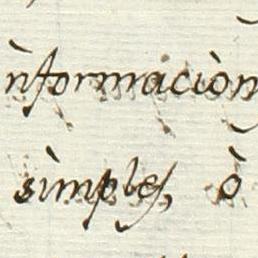 ìnformaciòn
sìmples, ò